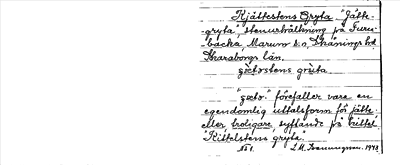 Kjättestens Gryta. "Jätte-
gryta", stenurholkning på Furu-
backa, Marum s:n, Skånings hd
Skaraborgs län.
"   " förefaller vara en
egendomlig uttalsform för jätte-
eller, troligare, syftande på kittel
"Kittelstens gryta".
No 1. 1943